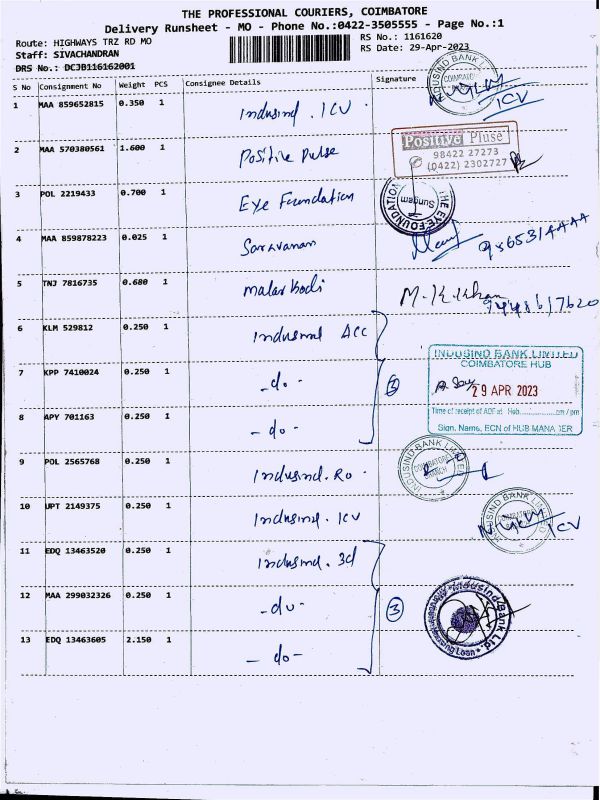 THE PROFESSIONAL COURIERS, COIMBATORE
Delivery Runsheet - MO - Phone No.:0422-3505555 - Page No.:1
Route: HIGHWAYS TRZ RD MO
RS No.: 1161620
Staff: SIVACHANDRAN
RS Date: 29-Apr-2023
DRS No.: DCJB116162001
S No Consignment No Weight PCS Consignee Details Signature
1 MAA 859652815 0.350 1 Indusind . ICU
ICV
2 MAA 570380561 1.600 1 Positive Pulse
Positive Pluse
98422 27273
(0422) 2302727
3 POL 2219433 0.700 1 Eye Foundation
THE EYE FOUNDATION
Sungam
4 MAA 859878223 0.025 1 Saravanan
5 TNJ 7816735 0.680 1 malar bodi
6 KLM 529812 0.250 1 Indusind ACC
7 KPP 7410024 0.250 1 -do- 3
INDUSIND BANK LIMITED
COIMBATORE HUB
29 APR 2023
Time of receipt of ADF at Hub............am / pm
Sign. Name, ECN of HUB MANAGER
8 APY 701163 0.250 1 -do-
9 POL 2565768 0.250 1 Indusind. Ro
INDUSIND BANK LIMITED
COIMBATORE
BRANCH
10 UPT 2149375 0.250 1 Indusind. ICU
INDUSIND BANK LIMITED
ICV
11 EDQ 13463520 0.250 1 Indusind. 3d
12 MAA 299032326 0.250 1 -do- 3
IndusInd Bank Ltd
Housing Loan
13 EDQ 13463605 2.150 1 -do-